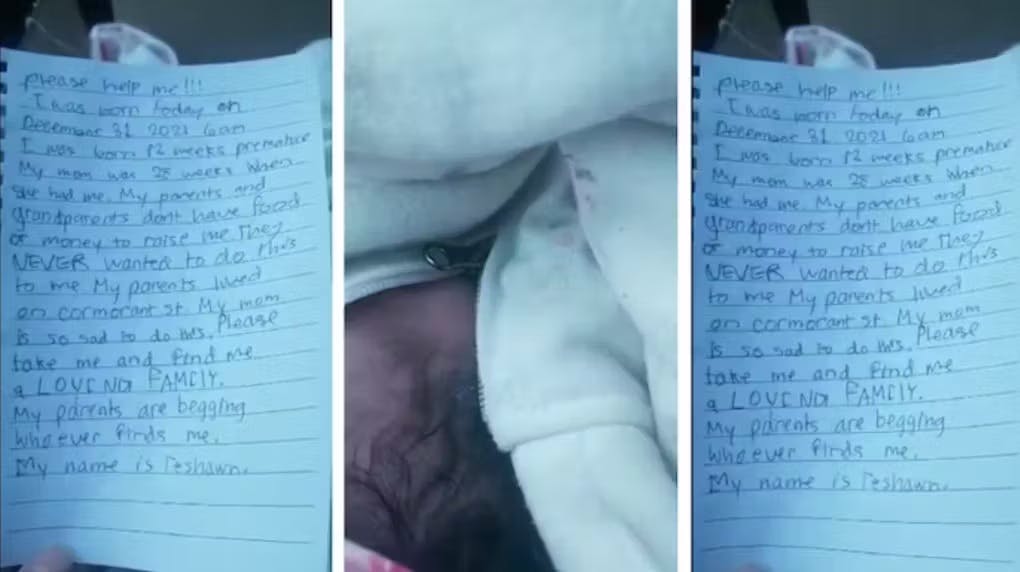 please help me!!!
I was born today on
Decembare 31 2021 6am
I was born 12 weeks premature
My mom was 28 weeks when
she had me. My parents and
grandparents dont have food
or money to raise me They
NEVER wanted to do this
to me My parents lived
on cormorant st. My mom
is so sad to do this. Please
take me and find me
a LOVING FAMCIY.
My parents are begging
whoever finds me.
My name is Teshawn.
please help me!!!
I was born today on
Decembare 31 2021 6am
I was born 12 weeks premature
My mom was 28 weeks when
she had me. My parents and
grandparents dont have food
or money to raise me They
NEVER wanted to do this
to me My parents lived
on cormorant st. My mom
is so sad to do this. Please
take me and find me
a LOVING FAMCIY.
My parents are begging
whoever finds me.
My name is Teshawn.